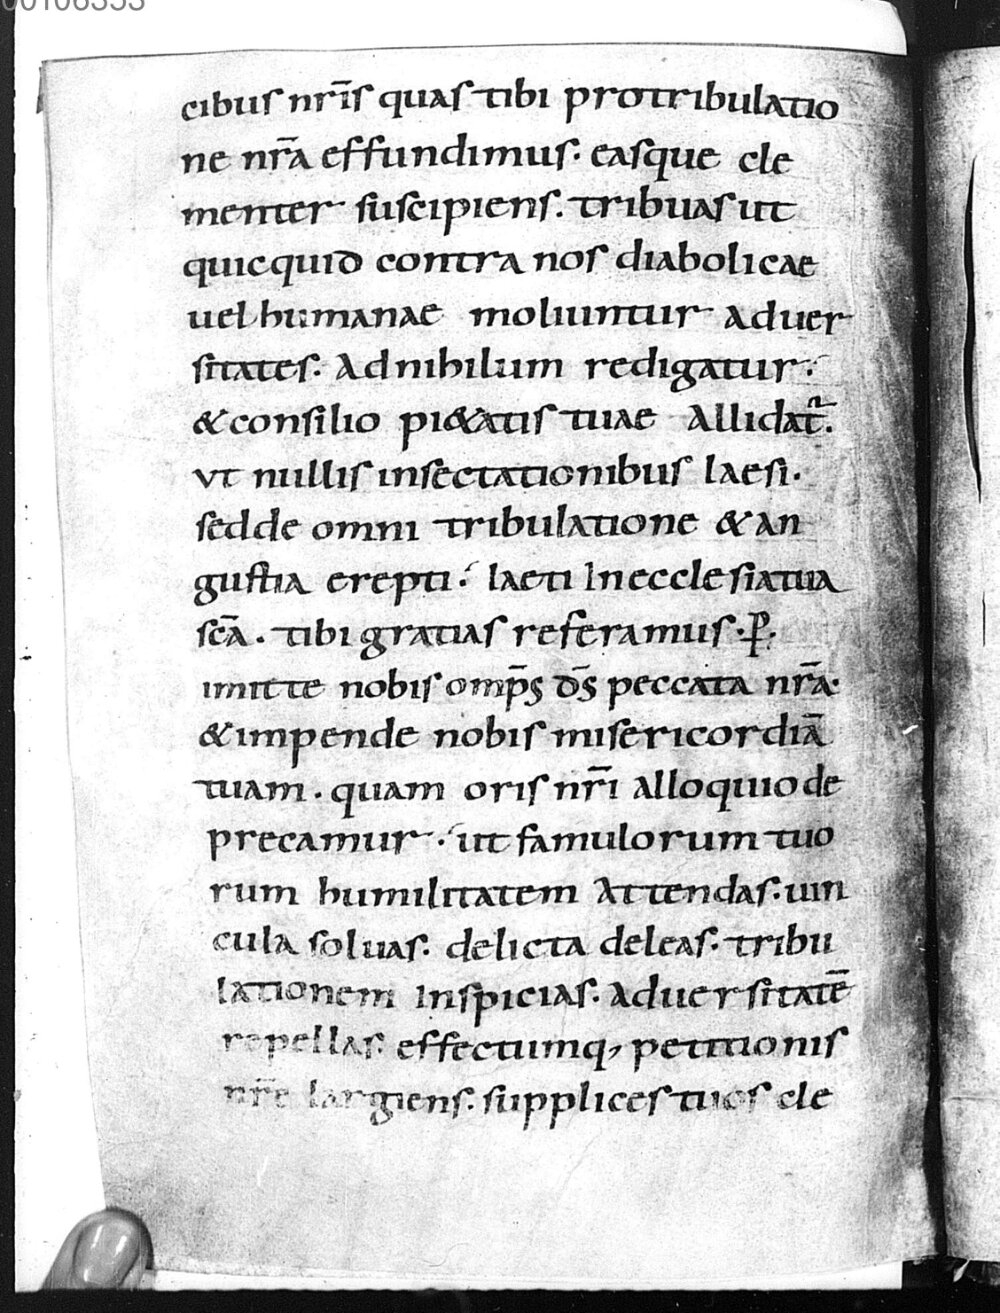 00106353
cibus nr̄is quas tibi pro tribulatio
ne nr̄a effundimus. easque cle
menter suscipiens. tribuas ut
quicquid contra nos diabolicae
uel humanae moliuntur aduer
sitates. Ad nihilum redigatur.
& consilio pi&atis tuae Allidat̄.
vt nullis insectationibus laesi.
sed de omni tribulatione & an
gustia erepti. laeti In ecclesia tua
scā. tibi gratias referamus. P̄.
imitte nobis omp̄s d̄s peccata nr̄a.
& impende nobis misericordiā
tuam. quam oris nr̄i alloquio de
precamur. ut famulorum tuo
rum humilitatem Attendas. uin
cula soluas. delicta deleas. tribu
lationem Inspicias. aduersitatē
repellas. effectumq, petitionis
nr̄e largiens. supplices tuos cle